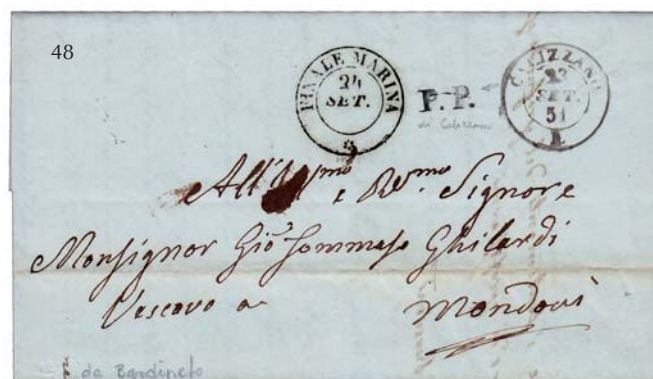 48
FINALE MARINA
24
SET.
P.P.
di Calizzano
CALIZZANO
23
SET.
51
All' Ill.mo e Rev.mo Signore
Monsignor Gio Tommaso Ghilardi
Vescovo a Mondovì
da Bardineto